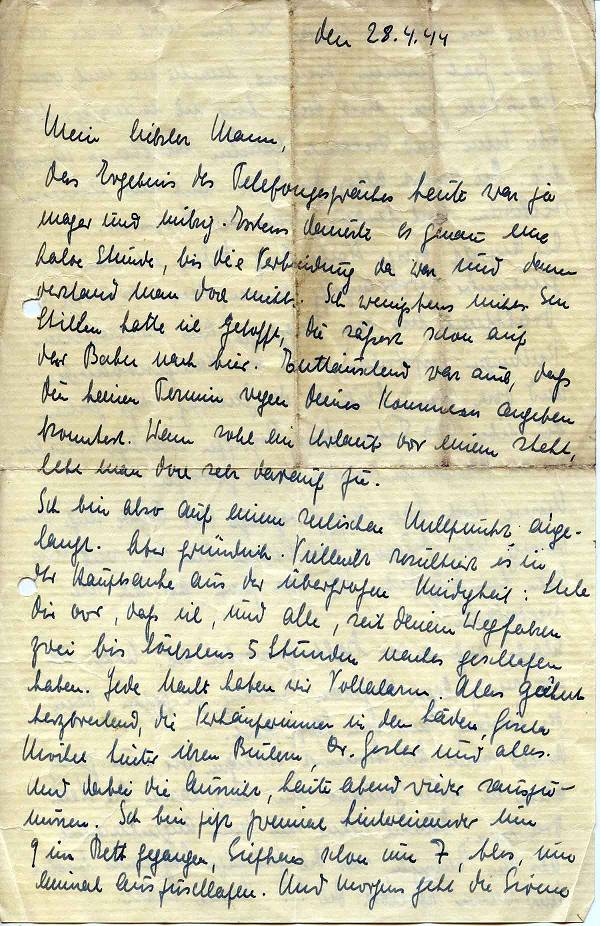 den 28.4.44
Mein liebster Mann,
das Ergebnis des Telefongespräches heute war ja
mager und mihig. Erstens dauerte es genau eine
halbe Stunde, bis die Verbindung da war und dann
verstand man doch nicht. Ich wenigstens nicht. Im
Stillen hatte ich gehofft, Du säßest schon auf
der Bahn nach hier. Enttäuschend war auch, daß
Du keinen Termin wegen Deines Kommens angeben
konntest. Wenn solch ein Urlaub vor einem steht,
lebt man doch sehr darauf zu.
Ich bin also auf einem seelischen Nullpunkt ange-
langt. Aber gründlich. Vielleicht resultiert es in
der Hauptsache aus der übergroßen Müdigkeit: Stelle
Dir vor, daß ich, und alle, seit Deinem Wegfahren
zwei bis höchstens 5 Stunden nachts geschlafen
haben. Jede Nacht haben wir Vollalarm. Alles gähnt
herzbrechend, die Verkäuferinnen in den Läden, Gisela
hinter ihren Büchern, Dr. und alles.
Und dabei die Aussicht, heute abend wieder rauszu-
müssen. Ich bin jetzt zweimal hintereinander um
9 im Bett gegangen, schon um 7, blos, um
einmal auszuschlafen. Und morgens geht die Sirene